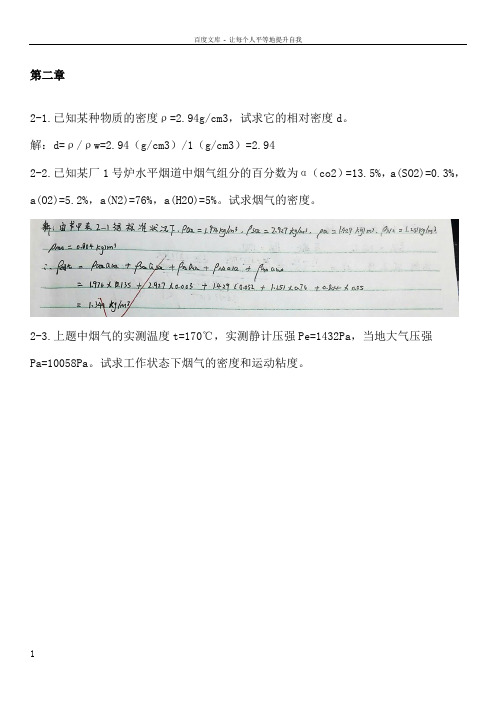 百度文库 - 让每个人平等地提升自我
第二章
2-1.已知某种物质的密度ρ=2.94g/cm3，试求它的相对密度d。
解：d=ρ/ρw=2.94（g/cm3）/1（g/cm3）=2.94
2-2.已知某厂1号炉水平烟道中烟气组分的百分数为α（co2）=13.5%，a(SO2)=0.3%，
a(O2)=5.2%，a(N2)=76%，a(H2O)=5%。试求烟气的密度。
解：由表2-1 标准状况下，ρCO2=1.976kg/m³，ρSO2=2.927kg/m³，ρO2=1.429kg/m³，ρN2=1.251kg/m³
ρH2O=0.804kg/m³
= 1.976×0.135 + 2.927×0.003 + 1.429×0.052 + 1.251×0.76 + 0.804×0.05
= 1.344 kg/m³
2-3.上题中烟气的实测温度t=170℃，实测静计压强Pe=1432Pa，当地大气压强
Pa=10058Pa。试求工作状态下烟气的密度和运动粘度。
1